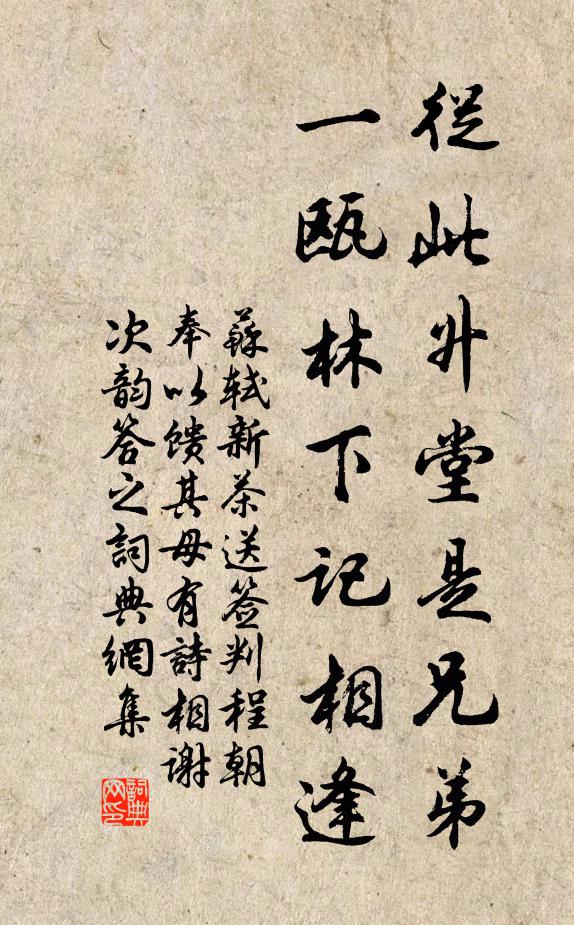 從此升堂是兄弟
一甌林下記相逢
蘇軾新茶送簽判程朝
奉以馈其母有詩相謝
次韵答之詞典網集
詞典
网印